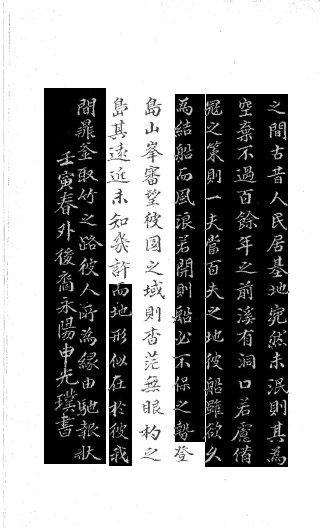 之間古昔人民居基地宛然未泯則其為
空棄不過百餘年之前溪有洞口若慮備
寇之策則一夫當百夫之地彼船雖欲久
為結船而風浪若開則船必不保之勢登
島山峯審望彼國之域則杳茫無眼杓之
島其遠近未知幾許而地形似在於彼我
間鼎釜取竹之路彼人所為緣由馳報狀
壬寅春外後裔永陽申光璞書